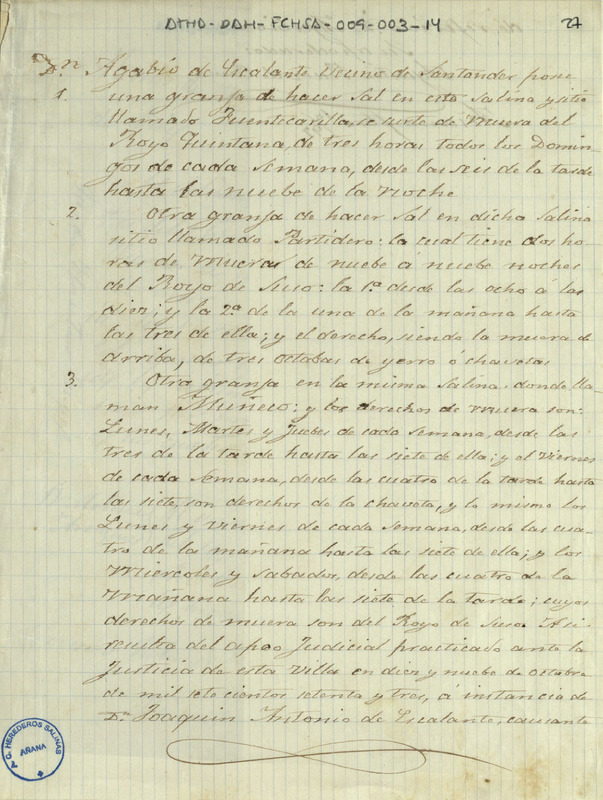 ATHD-DAH-FCHSA-009-003-14
27
Dn. Agabio de Escalante vecino de Santander posee
1. una granja de hacer sal en esta Salina y sitio
llamado Fuentecarilla, se surte de Muera del
Royo Quintana, de tres horas todos los Domin-
gos de cada semana, desde las seis de la tarde
hasta las nuebe de la noche
2. Otra granja de hacer sal en dicha Salina
sitio llamado Partidero: la cual tiene dos ho-
ras de Muera de nuebe á nuebe noches
del Royo de Suso: la 1a. desde las ocho á las
diez; y la 2a. de la una de la mañana hasta
las tres de ella; y el derecho, siendo la muera de
arriba, de tres octabas de yerro ó chavetas
3. Otra granja en la misma Salina donde lla-
man Muñeco: y los derechos de muera son:
Lunes, Martes y Juebes de cada semana, desde las
tres de la tarde hasta las siete de ella; y el Viernes
de cada semana, desde las cuatro de la tarde hasta
las siete, son derechos de la chaveta, y lo mismo los
Lunes y Viernes de cada semana, desde las cua-
tro de la mañana hasta las siete de ella; y los
Miercoles y Sabados, desde las cuatro de la
Mañana hasta las siete de la tarde; cuyos
derechos de muera son del Royo de Suso. Asi
resulta del apeo Judicial practicado ante la
Justicia de esta Villa en diez y nuebe de Octubre
de mil sete cientos setenta y tres, á instancia de
Dn. Joaquin Antonio de Escalante, causante
C. HEREDEROS SALINAS
AÑANA